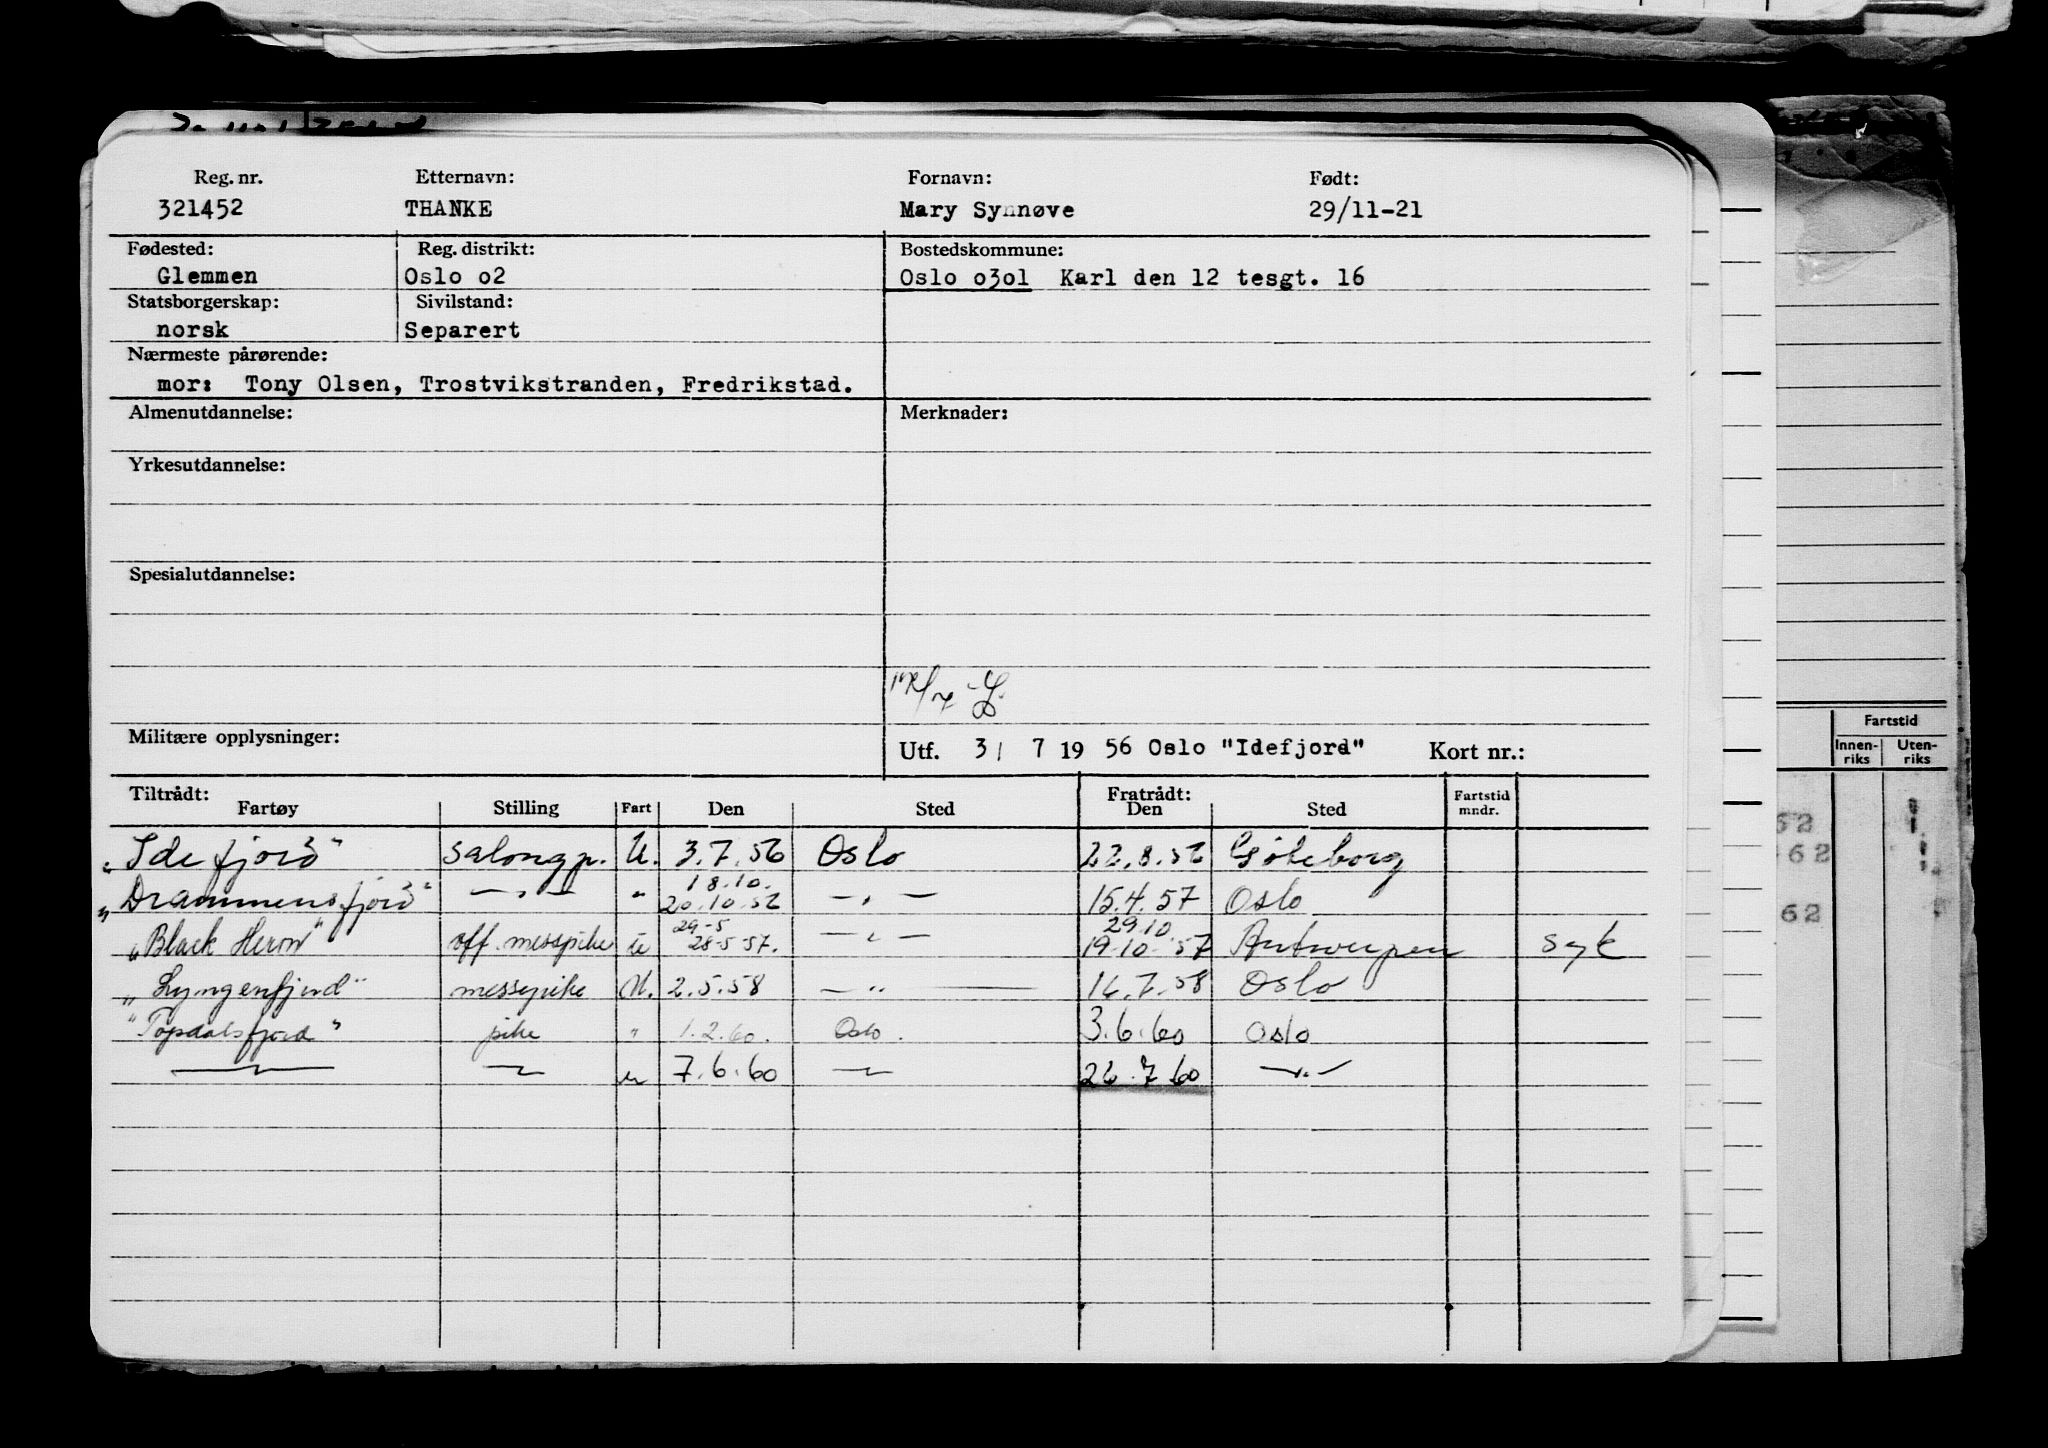 Reg. nr. Etternavn: Fornavn: Født:
321452 THANKE Mary Synnøve 29/11-21
Fødested: Reg. distrikt: Bostedskommune:
Glemmen Oslo o2 Oslo o3o1 Karl den 12 tesgt. 16
Statsborgerskap: Sivilstand:
norsk Separert
Nærmeste pårørende:
mor: Tony Olsen, Trostvikstranden, Fredrikstad.
Almenutdannelse: Merknader:
Yrkesutdannelse:
Spesialutdannelse:
Militære opplysninger: Utf. 3/ 7 19 56 Oslo "Idefjord" Kort nr.:
Tiltrådt: Fratrådt: Fartstid
Fartøy Stilling Fart Den Sted Den Sted mndr.
"Idefjord" salongp. U. 3.7.56 Oslo 22.8.56 Göteborg
18.10.
"Drammensfjord" —„— " 20.10.56 —„— 15.4.57 Oslo
29-5 29.10
"Black Heron" off. messpike u 28-5-57. —„— 19-10-57 Antwerpen syk
"Lyngenfjord" messepike U. 2.5.58 —„— 16.7.58 Oslo
"Topdalsfjord" pike " 1.2.60. Oslo. 3.6.60 Oslo
—„— —„— u 7.6.60 —„— 26.7.60 —„—
Fartstid
Innen-riks Uten-riks
52
62
62